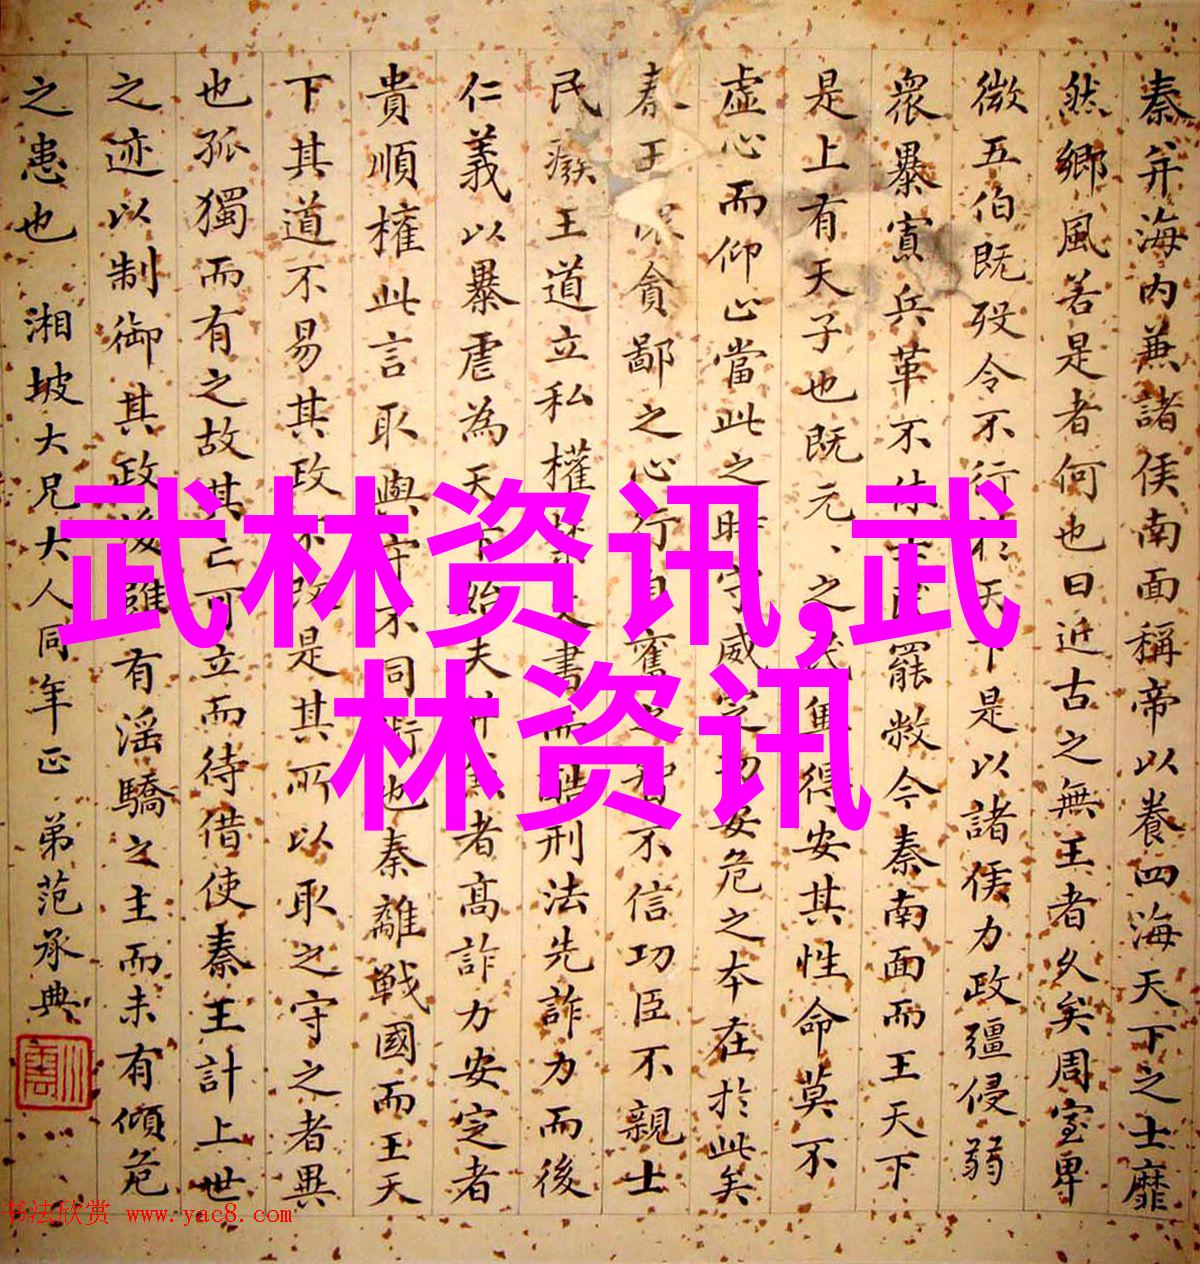 秦并海内兼諸侯南面稱帝以養四海天下之士靡
然鄉風若是者何也曰近古之無王者久矣周室卑
微五伯既殁令不行於天下是以諸侯力政彊侵弱
衆暴寡兵革不休士民罷敝今秦南面而王天下
是上有天子也既元、之民兾得安其性命莫不
虚心而仰止當此之時守威定功安危之本在於此矣
秦王貪鄙之心行自奮之智不信功臣不親士
民廢王道立私權禁文書而酷刑法先詐力而後
仁義以暴虐為天下始夫并兼者高詐力安定者
貴順權此言取與守不同術也秦離戰國而王天
下其道不易其政不改是其所以取之守之者異
也孤獨而有之故其亡可立而待借使秦王計上世
之迹以制御其政後雖有淫驕之主而未有傾危
之患也 湘坡大兄大人同年正 弟范承典
武林资讯,武
林资讯
书法欣赏 www.yac8.com